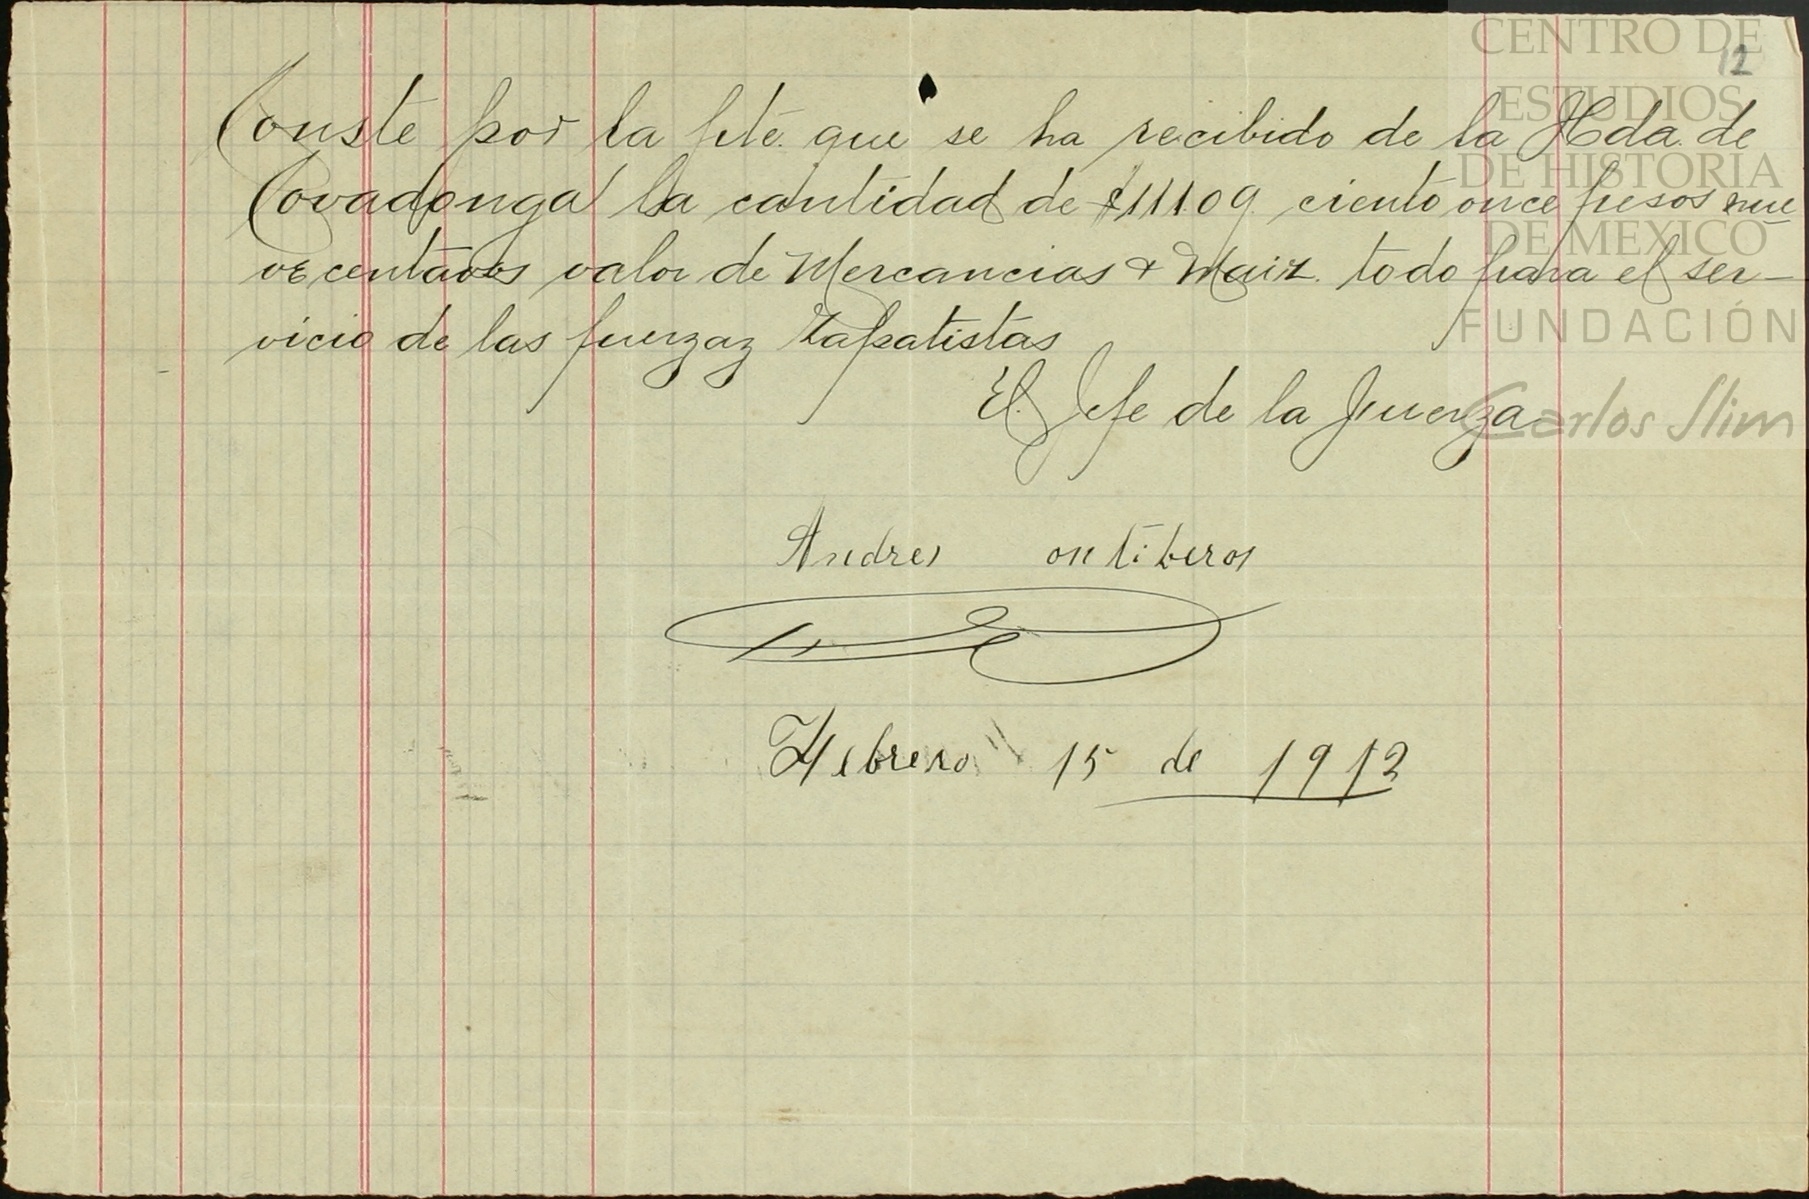 12
Conste por la pte. que se ha recibido de la Hda. de
Covadonga la cantidad de $111.09 ciento once pesos nue
ve centavos valor de Mercancias & Maiz. todo para el ser-
vicio de las fuerzaz Zapatistas
El Jefe de la fuerza
Andres ontiberos
Febrero 15 de 1912
CENTRO DE
ESTUDIOS
DE HISTORIA
DE MEXICO
FUNDACIÓN
Carlos Slim